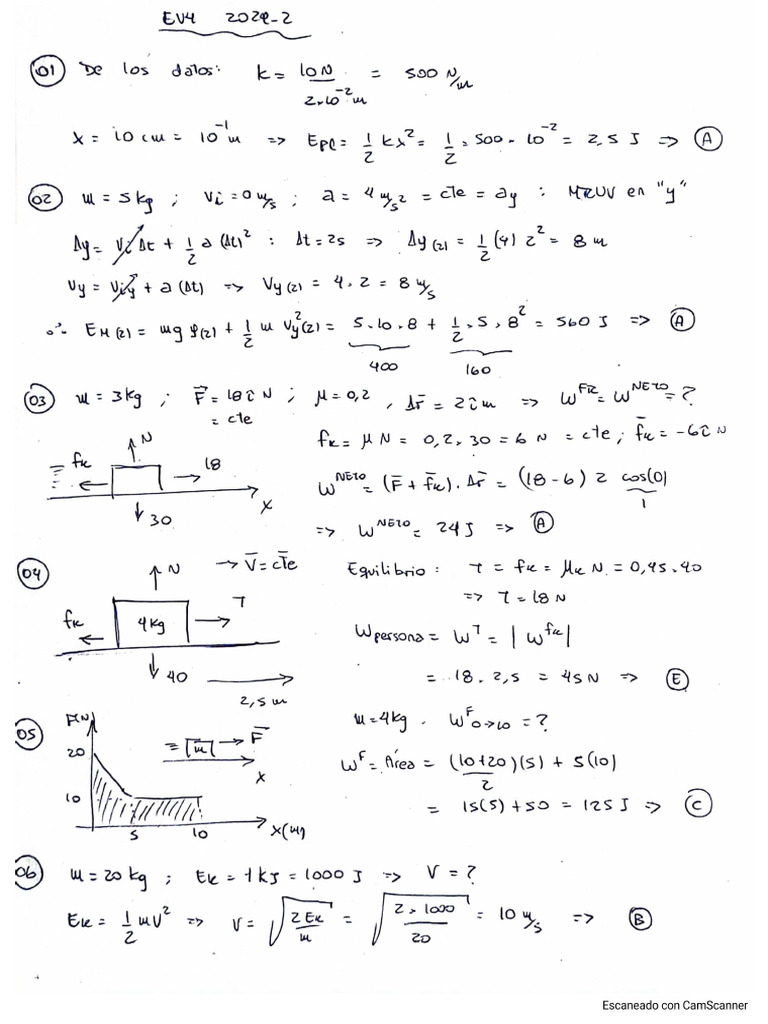 EV4 2022-2
01 De los datos: k = 10N / 2×10⁻²m = 500 N/m
x = 10 cm = 10⁻¹m => Epe = 1/2 kx² = 1/2 × 500 × 10⁻² = 2,5 J => A
02 m = 5kg ; Vi = 0 m/s ; a = 4 m/s² = cte = ay : MRUV en "y"
Δy = Vi Δt + 1/2 a (Δt)² : Δt = 2s => Δy(2) = 1/2 (4) 2² = 8 m
Vy = Viy + a(Δt) => Vy(2) = 4.2 = 8 m/s
∴ EM(2) = mg y(2) + 1/2 m Vy²(2) = 5.10.8 + 1/2 . 5 . 8² = 560 J => A
400 160
03 m = 3kg ; F⃗ = 18î N ; μ = 0,2 , Δr̄ = 2î m => W^FR = W^NETO = ?
= cte
fk = μN = 0,2.30 = 6 N = cte ; f̄k = -6î N
fk N 18
W^NETO = (F̄ + f̄k) . Δr̄ = (18-6) 2 cos(0)
1
30 X
=> W^NETO = 24 J => A
04 N → V̄ = cte
Equilibrio : T = fk = μk N = 0,45.40
=> T = 18 N
fk 4kg T
Wpersona = W^T = |W^fk|
40
= 18. 2,5 = 45N => E
2,5 m
05 F(N)
m = 4kg . W^F 0→10 = ?
20 m F⃗
X
W^F = Área = (10+20)/2 (5) + 5(10)
10
= 15(5) + 50 = 125 J => C
5 10 X(m)
06 m = 20 kg ; Ek = 1 kJ = 1000 J => V = ?
Ek = 1/2 mV² => V = √(2Ek/m) = √(2×1000/20) = 10 m/s => B
Escaneado con CamScanner